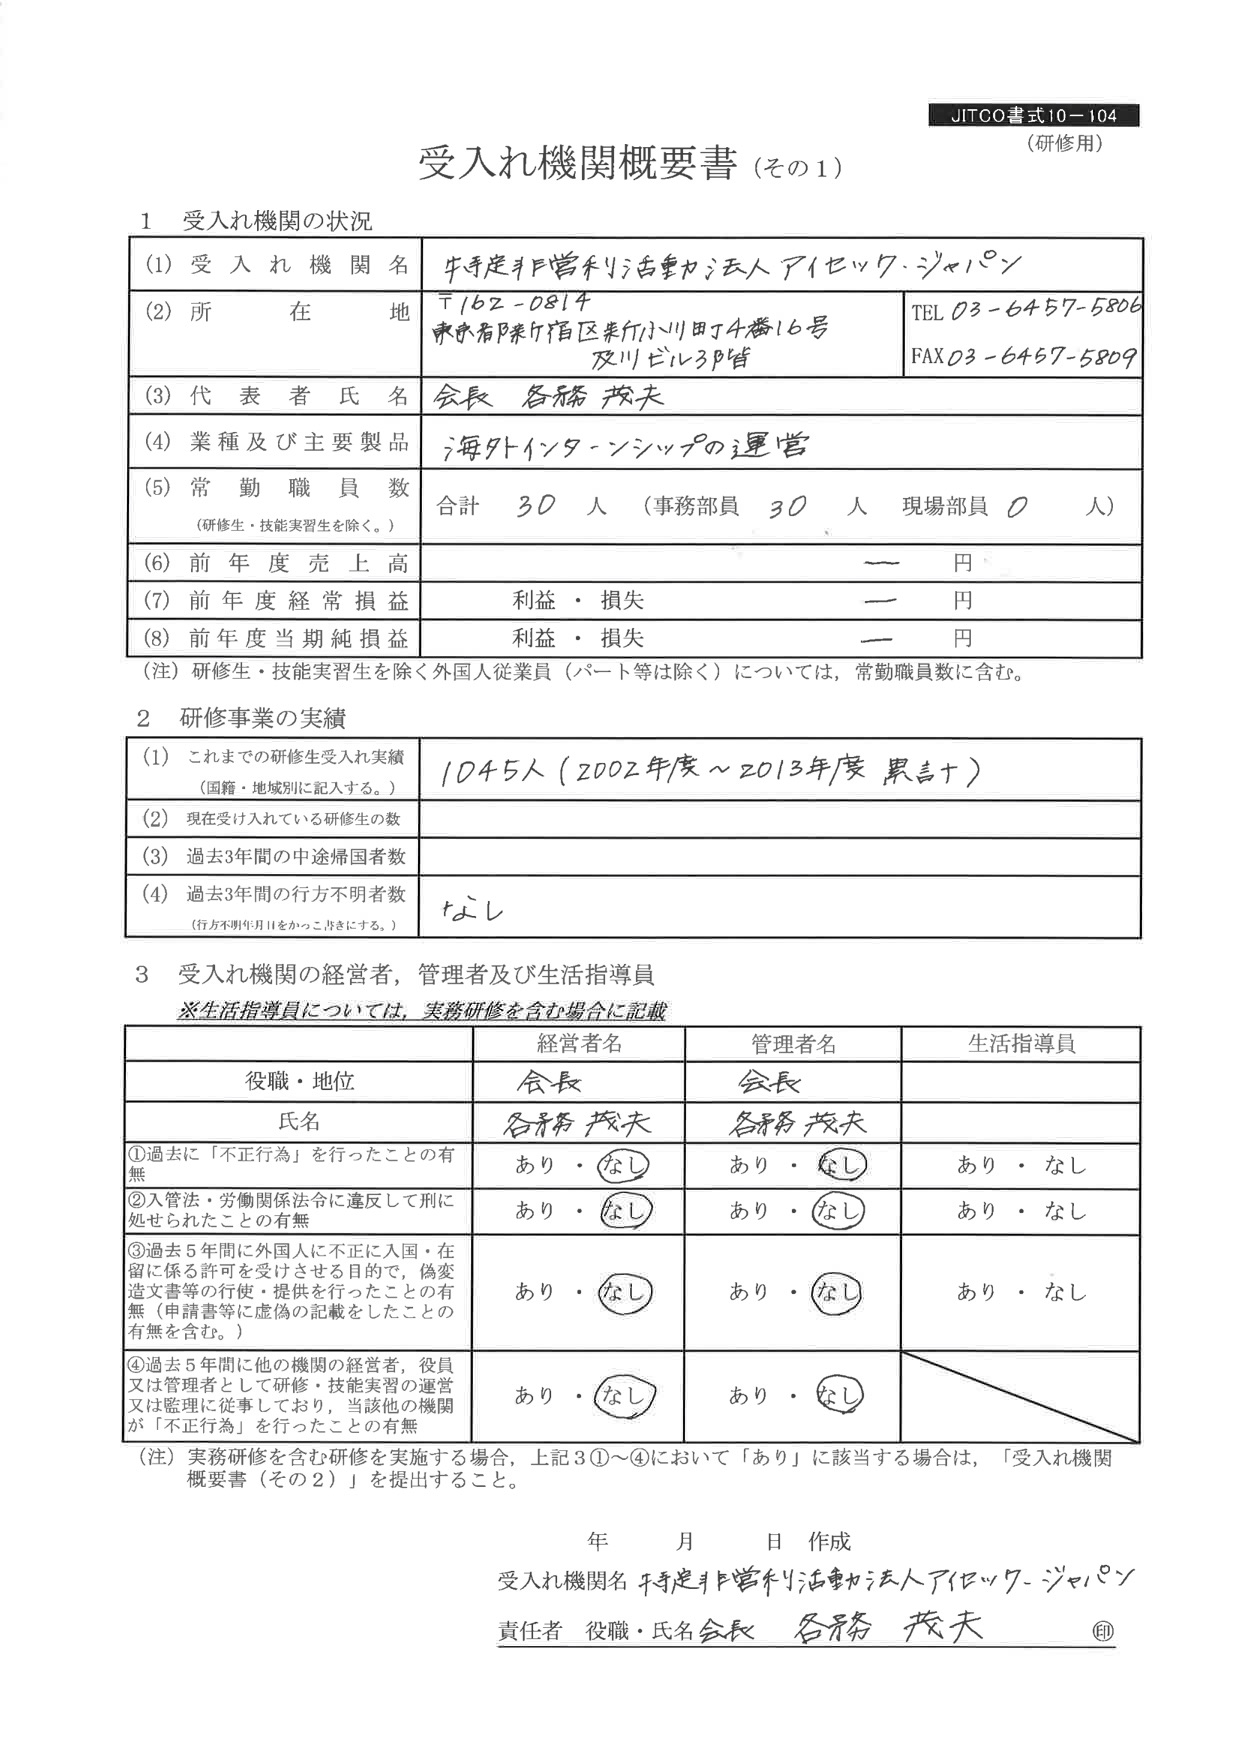 JITCO書式10－104
（研修用）
受入れ機関概要書（その１）
１　受入れ機関の状況
(1) 受入れ機関名　特定非営利活動法人 アイセック・ジャパン
(2) 所在地　〒162-0814
東京都新宿区新小川町4番16号
及川ビル3階
TEL 03-6457-5806
FAX 03-6457-5809
(3) 代表者氏名　会長　各務 茂夫
(4) 業種及び主要製品　海外インターンシップの運営
(5) 常勤職員数　合計 30 人 （事務部員 30 人 現場部員 0 人）
（研修生・技能実習生を除く。）
(6) 前年度売上高　ー 円
(7) 前年度経常損益　利益 ・ 損失　ー 円
(8) 前年度当期純損益　利益 ・ 損失　ー 円
（注）研修生・技能実習生を除く外国人従業員（パート等は除く）については，常勤職員数に含む。
２　研修事業の実績
(1) これまでの研修生受入れ実績　1045人（2002年度～2013年度 累計）
（国籍・地域別に記入する。）
(2) 現在受け入れている研修生の数
(3) 過去3年間の中途帰国者数
(4) 過去3年間の行方不明者数　なし
（行方不明年月日をかっこ書きにする。）
３　受入れ機関の経営者，管理者及び生活指導員
※生活指導員については，実務研修を含む場合に記載
経営者名　管理者名　生活指導員
役職・地位　会長　会長
氏名　各務 茂夫　各務 茂夫
①過去に「不正行為」を行ったことの有
無
あり ・ なし　あり ・ なし　あり ・ なし
②入管法・労働関係法令に違反して刑に
処せられたことの有無
あり ・ なし　あり ・ なし　あり ・ なし
③過去５年間に外国人に不正に入国・在
留に係る許可を受けさせる目的で，偽変
造文書等の行使・提供を行ったことの有
無（申請書等に虚偽の記載をしたことの
有無を含む。）
あり ・ なし　あり ・ なし　あり ・ なし
④過去５年間に他の機関の経営者，役員
又は管理者として研修・技能実習の運営
又は監理に従事しており，当該他の機関
が「不正行為」を行ったことの有無
あり ・ なし　あり ・ なし
（注）実務研修を含む研修を実施する場合，上記３①～④において「あり」に該当する場合は，「受入れ機関
概要書（その２）」を提出すること。
年　月　日　作成
受入れ機関名 特定非営利活動法人アイセック・ジャパン
責任者　役職・氏名 会長　各務 茂夫　㊞